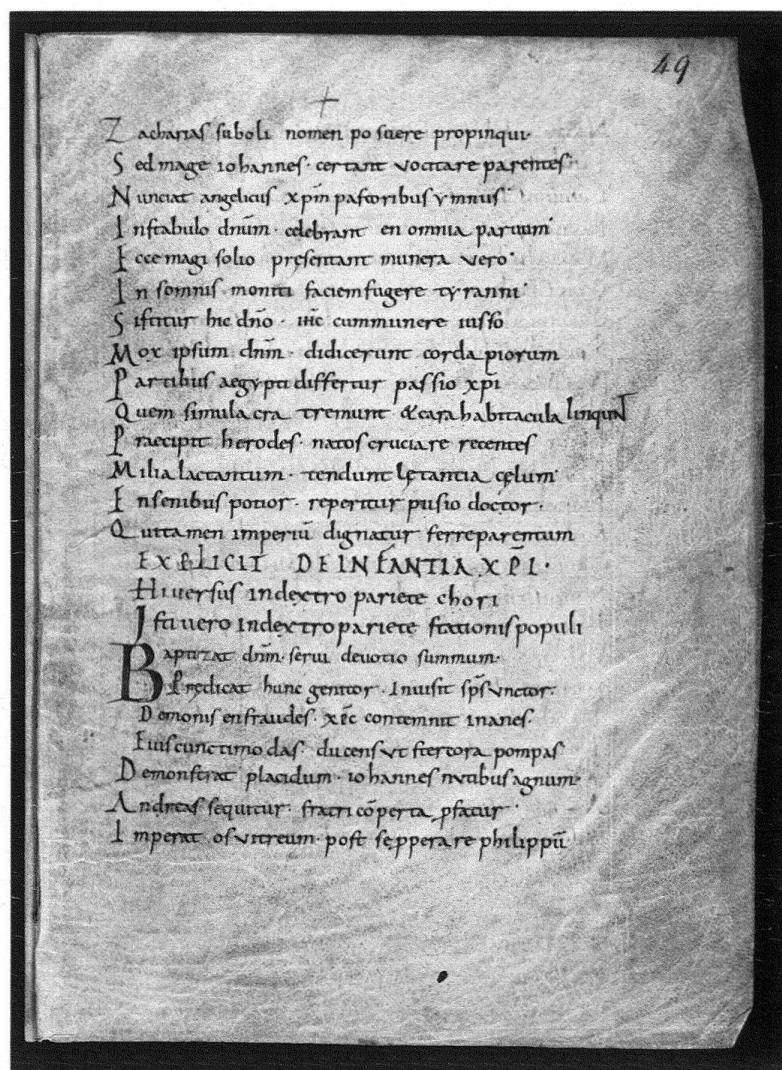 49
Zacharias suboli nomen posuere propinqui·
Sed mage iohannes· certant vocitare parentes·
Nunciat angelicus xpm̄ pastoribus ymnus·
In stabulo dnm̄· celebrant en omnia paruum·
Ecce magi solio presentant munera vero·
In somnis moniti faciem fugere tyranni·
Sistitur hic dn̄o· cum munere iusso
Mox ipsum dnm̄· didicerunt corda piorum
Partibus aegypti differtur passio xp̄i
Quem simulacra tremunt & cara habitacula linquNT
Praecipit herodes· natos cruciare recentes
Milia lactantum· tendunt lętantia cęlum·
In senibus potior· reperitur pusio doctor·
Qui tamen imperiū dignatur ferre parentum
EXPLICIT DE INFANTIA XP̄I·
Hi versus in dextro pariete chori
Isti vero in dextro pariete stationis populi
Baptizat dnm̄· serui deuotio summum·
Predicat hunc genitor· Inuisit sp̄s vnctor·
Demonis en fraudes· xp̄c contemnit inanes·
Eius cunctimodas ducens vt stercora pompas
Demonstrat placidum· iohannes nutibus agnum·
Andreas sequitur· fratri cōperta p̱fatur·
Imperat os vitreum· post sę pperare philippū